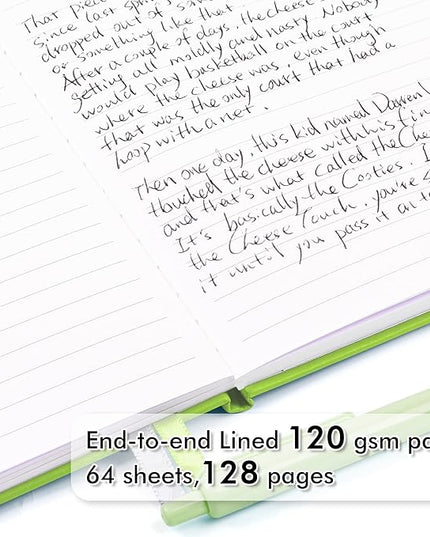 That piece
since last spring
dropped out of some
or something like that
After a couple of days, the cheese
getting all moldy and nasty. Nobody
would play basketball on the court
where the cheese was, even though
that was the only court that had a
hoop with a net.
Then one day, this kid named Darren
touched the cheese with his fin
and that's what called the Che
It's basically the Cooties. I
the Cheese Touch, you're s
it until you pass it on to
End-to-end Lined 120 gsm pa
64 sheets,128 pages